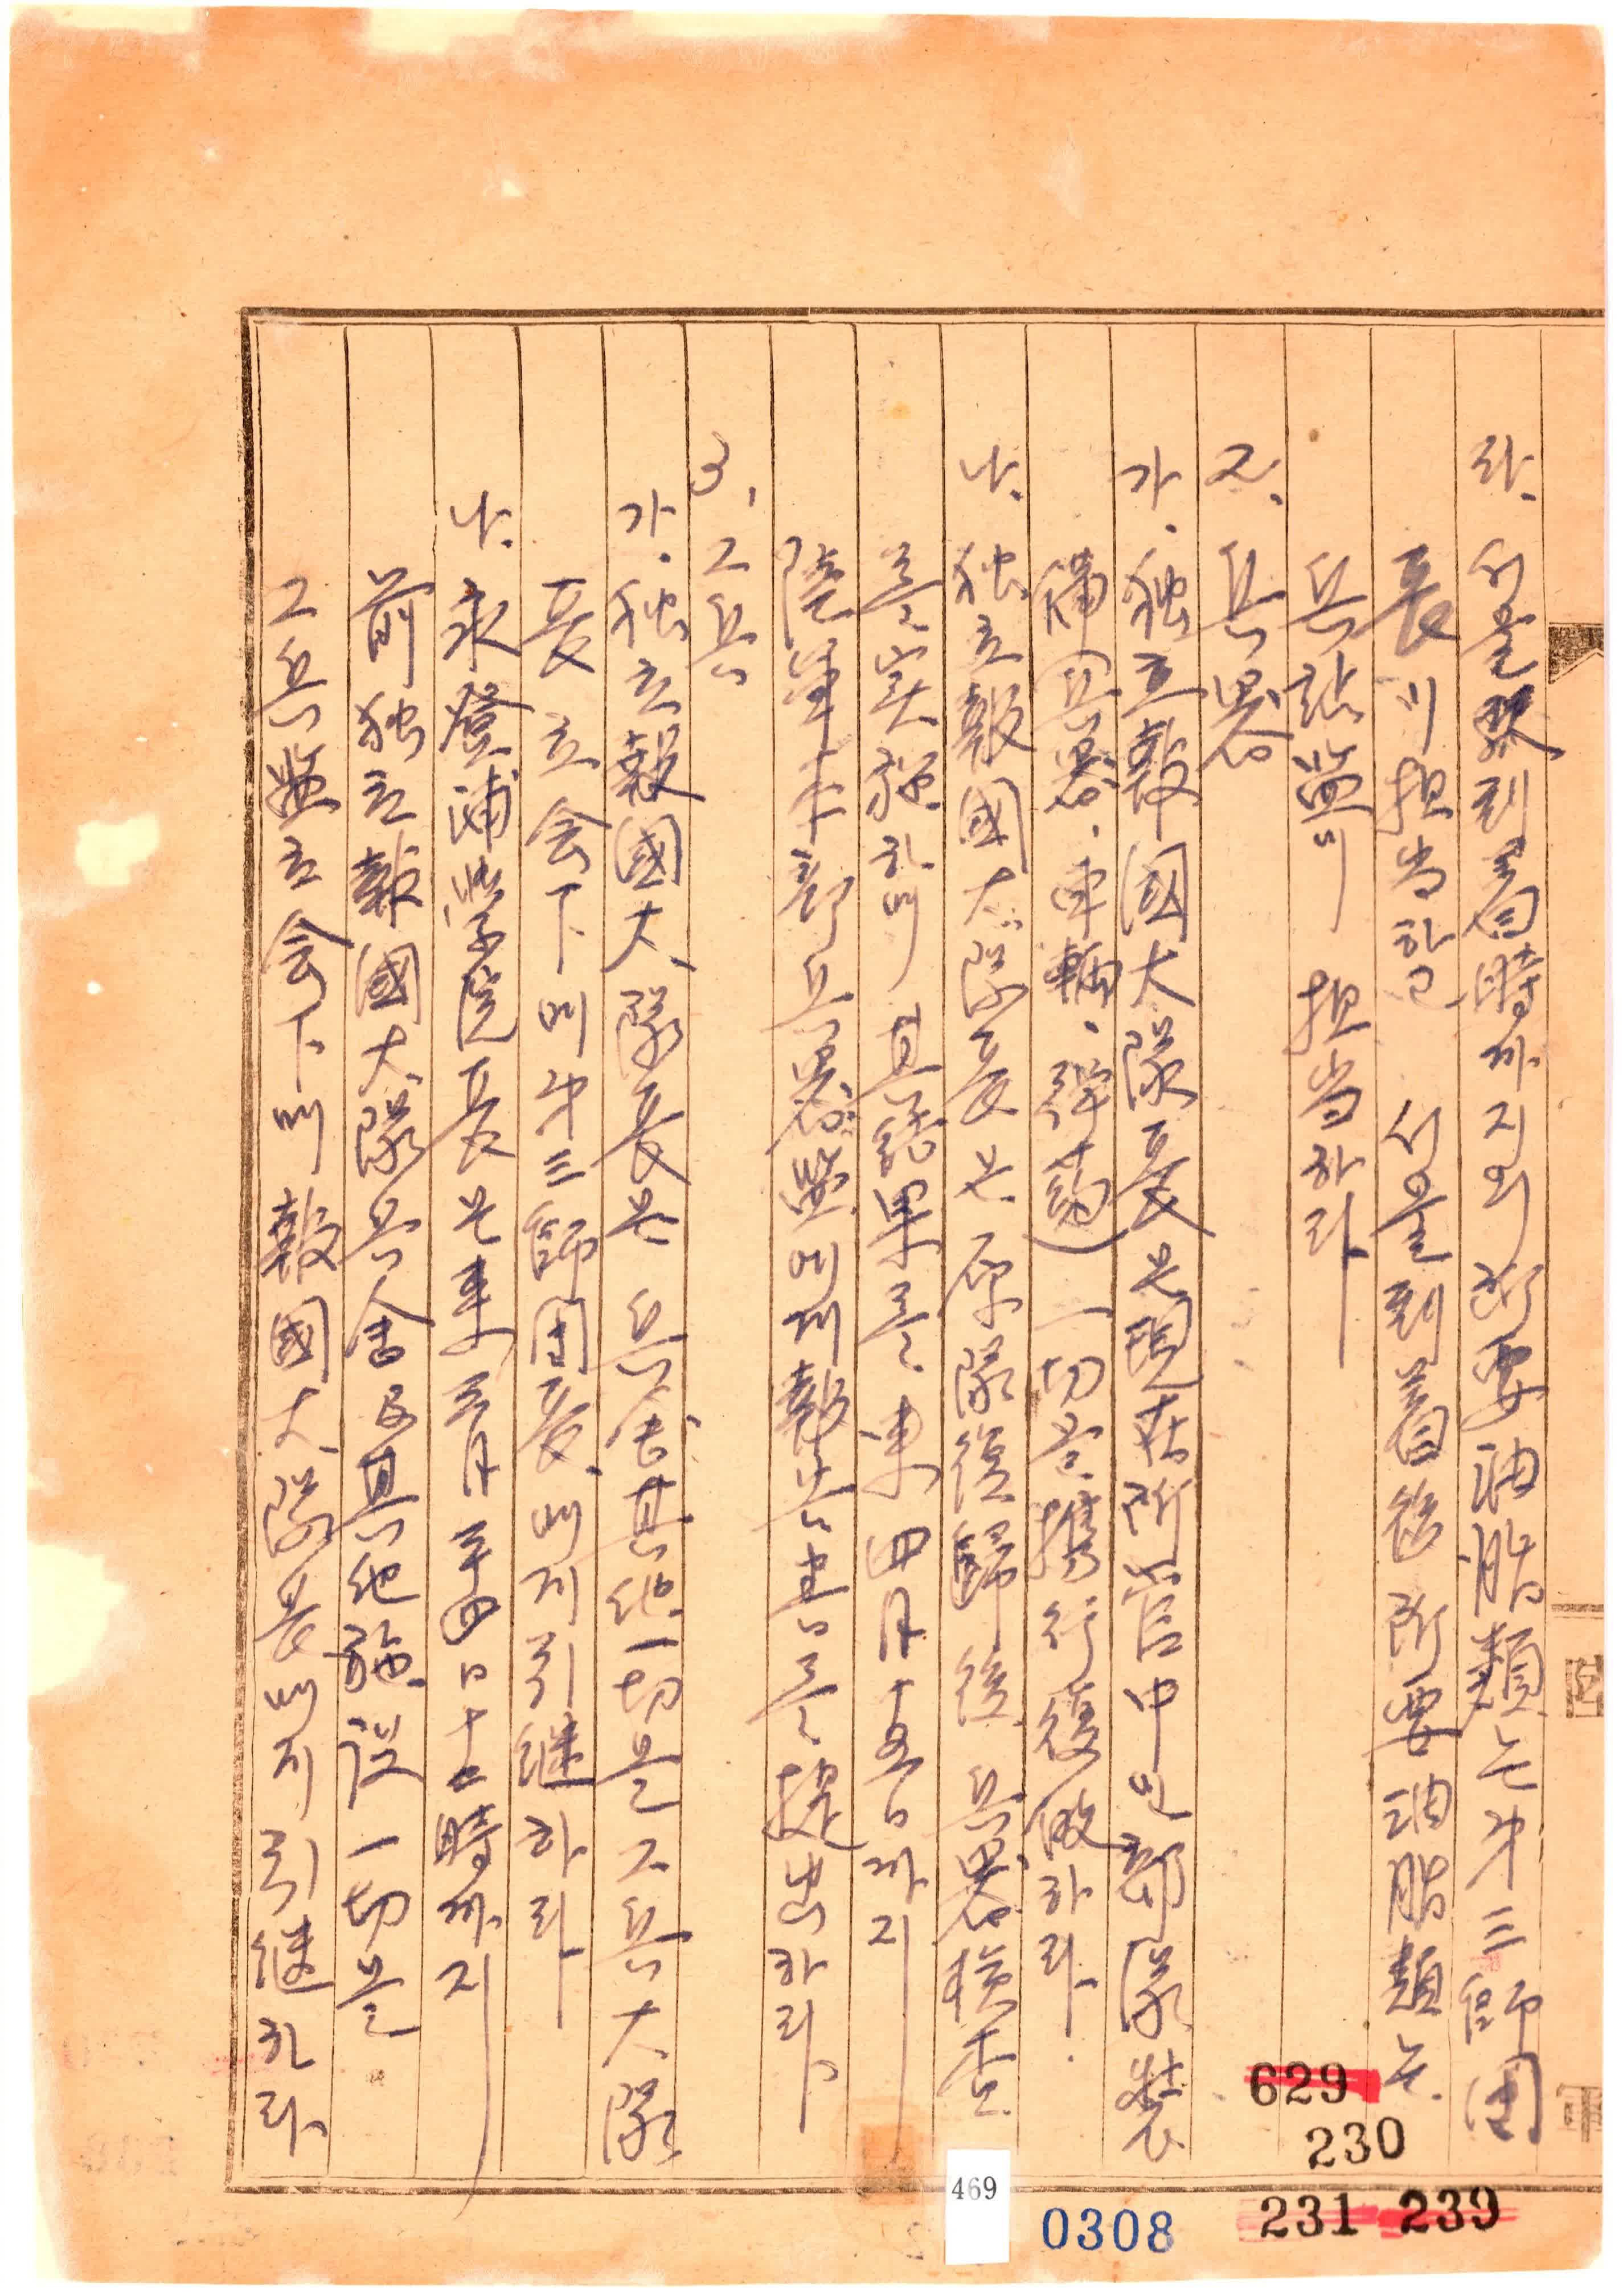 라. 서울驛到着時까지의 所要油脂類는 第三師団
長이 担当하고 서울到着後 所要油脂類는
兵站監이 担当하라
2. 兵器
가. 独立報國大隊長은 現在所管中인 部隊装
備(兵器、車輛、弾薬) 一切을 携行復皈하라.
나. 独立報國大隊長은 原隊復歸後 兵器検査
를 実施하며 其結果를 来四月十五日까지
陸軍本部兵器監에게 報告書를 提出하라
3. 工兵
가. 独立報國大隊長은 兵舎其他一切을 工兵大隊
長 立会下에 第三師団長에게 引継하라
나. 永登浦学院長은 来三月 日十 時까지
前独立報國大隊兵舎及其他施設一切을
工兵監立会下에 報國大隊長에게 引継하라
629
230
231 239
469
0308